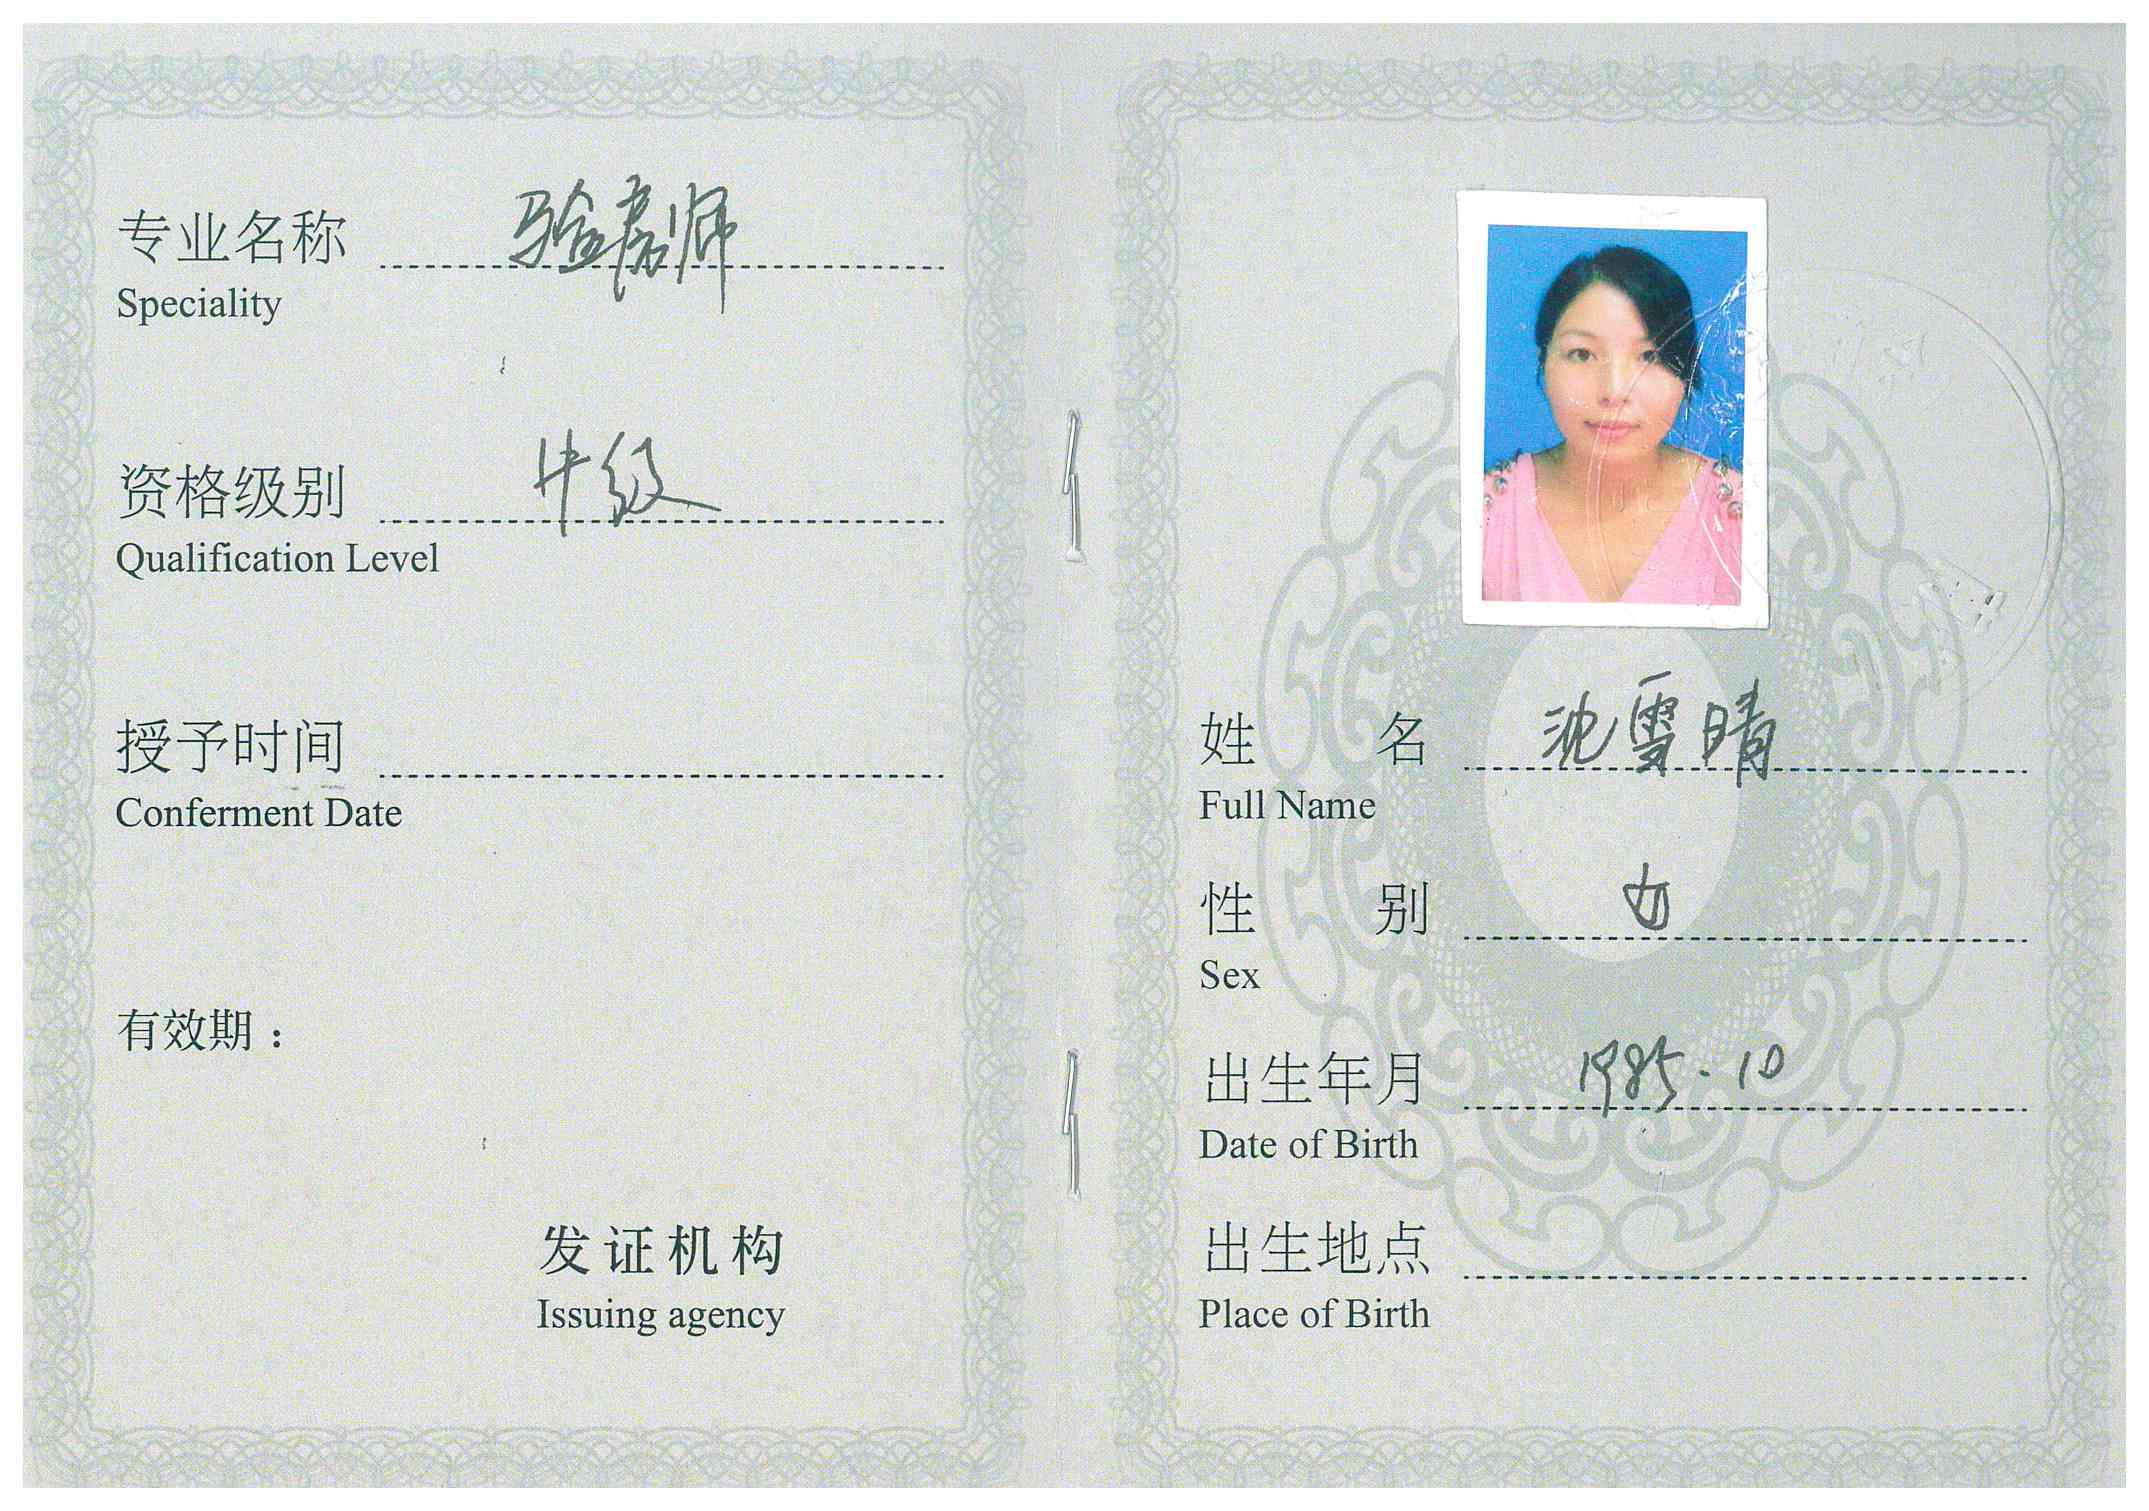 专业名称 验房师
Speciality
资格级别 中级
Qualification Level
授予时间
Conferment Date
有效期：
发证机构
Issuing agency
姓 名 沈雪晴
Full Name
性 别 女
Sex
出生年月 1985.10
Date of Birth
出生地点
Place of Birth